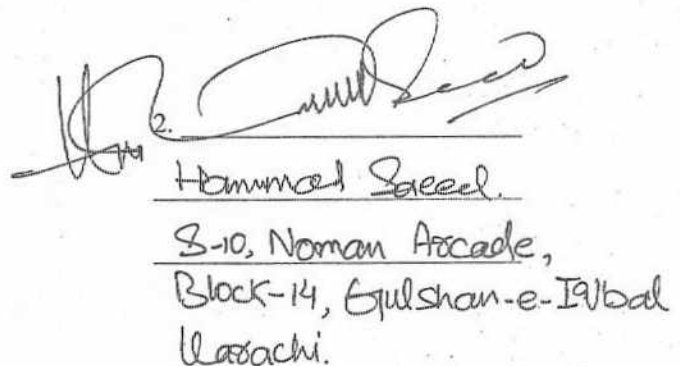 2.
Hammad Saeed.
S-10, Noman Arcade,
Block-14, Gulshan-e-Iqbal
Karachi.